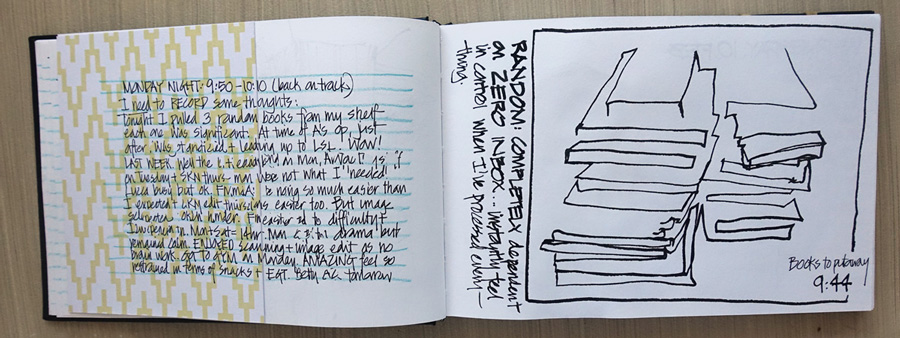 MONDAY NIGHT: 9:50-10:10 (back on track)
I need to RECORD some thoughts:
Tonight I pulled 3 random books from my shelf
each one was significant. At time of A's op, just
after, was + leading up to WOW!
LAST WEEK. Well the on Mon,
on Tuesday + SKN thurs- man were not what I "needed!
busy but ok. is being so much easier than
I expected + LKM edit thursday easier too. But image
harder. to difficulty
Mon + sat = drama but
remained calm. ENJOYED scanning + image edit as no
brain work. Got to GYM on Monday. AMAZING feel so
in terms of snacks + EGT. Betty tomorrow
RANDOM: COMPLETELY dependent
on ZERO INBOX... instantly feel
in control when I've processed every-
thing.
Books to put away
9:44